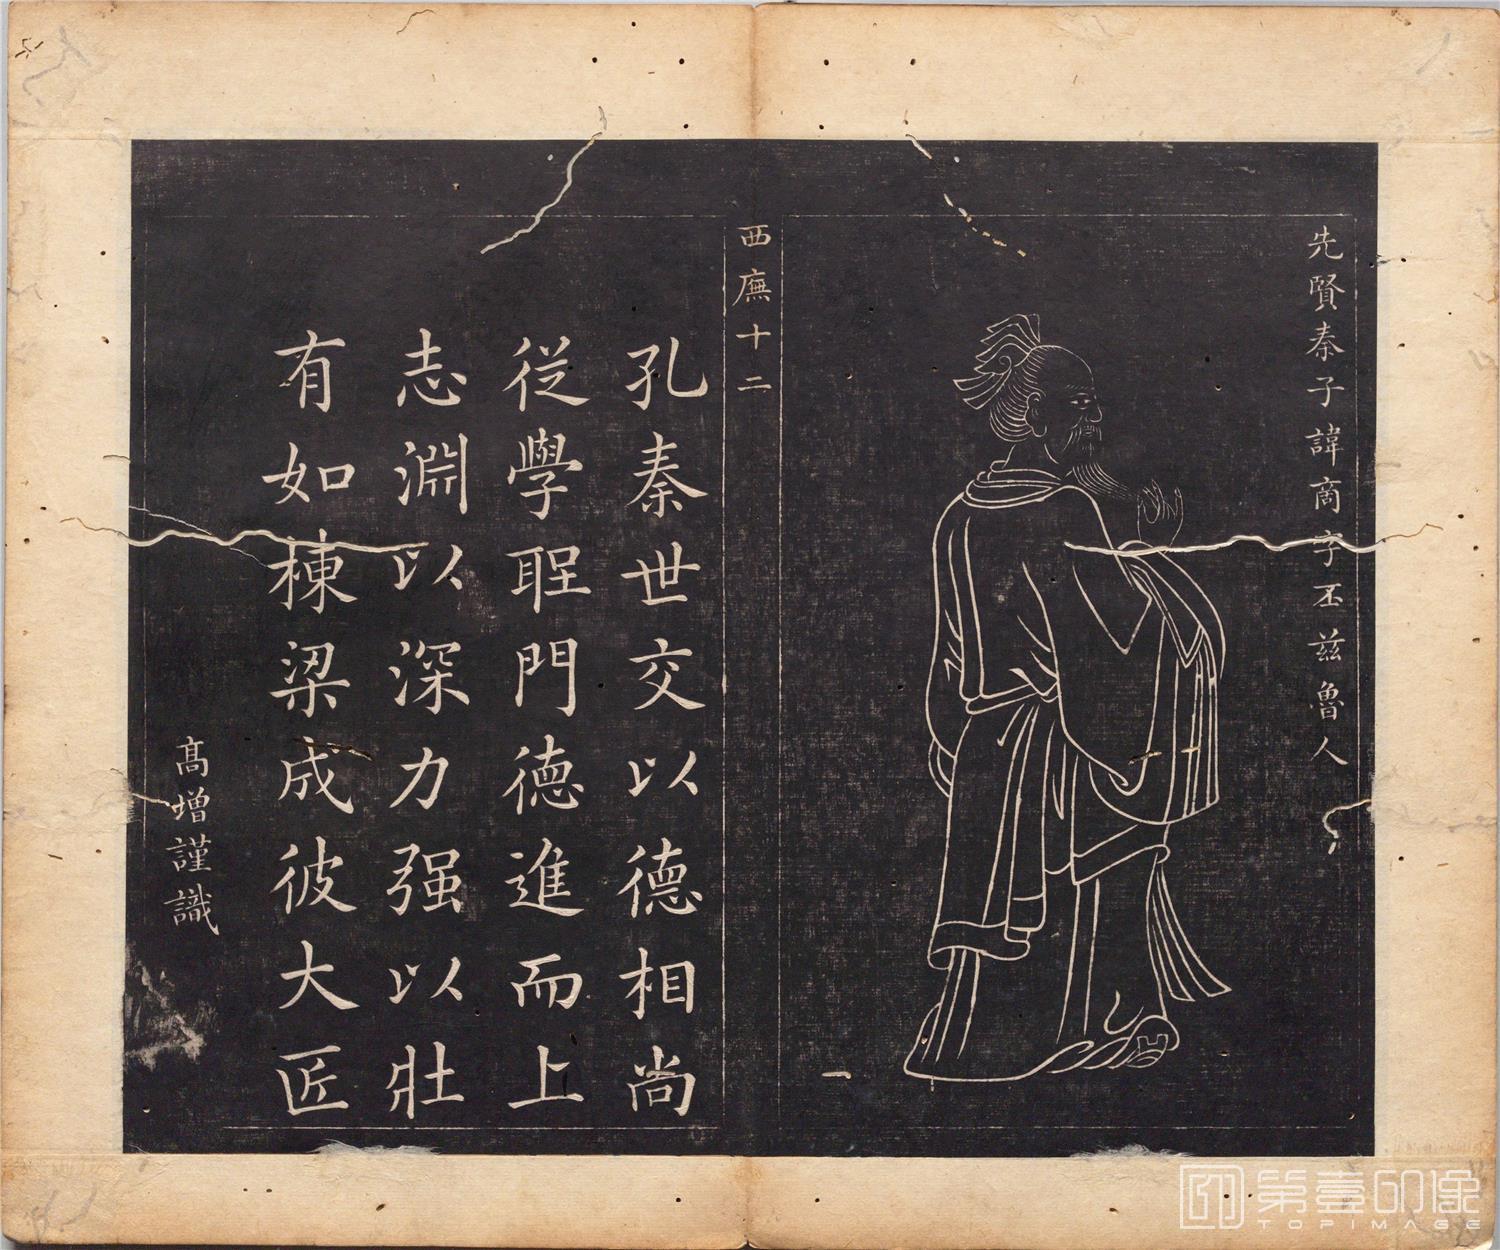 先賢秦子諱商字丕茲魯人
西廡十二
孔秦世交以德相尚
從學聖門德進而上
志淵以深力强以壯
有如棟梁成彼大匠
髙增謹識
第壹印像
TOPIMAGE